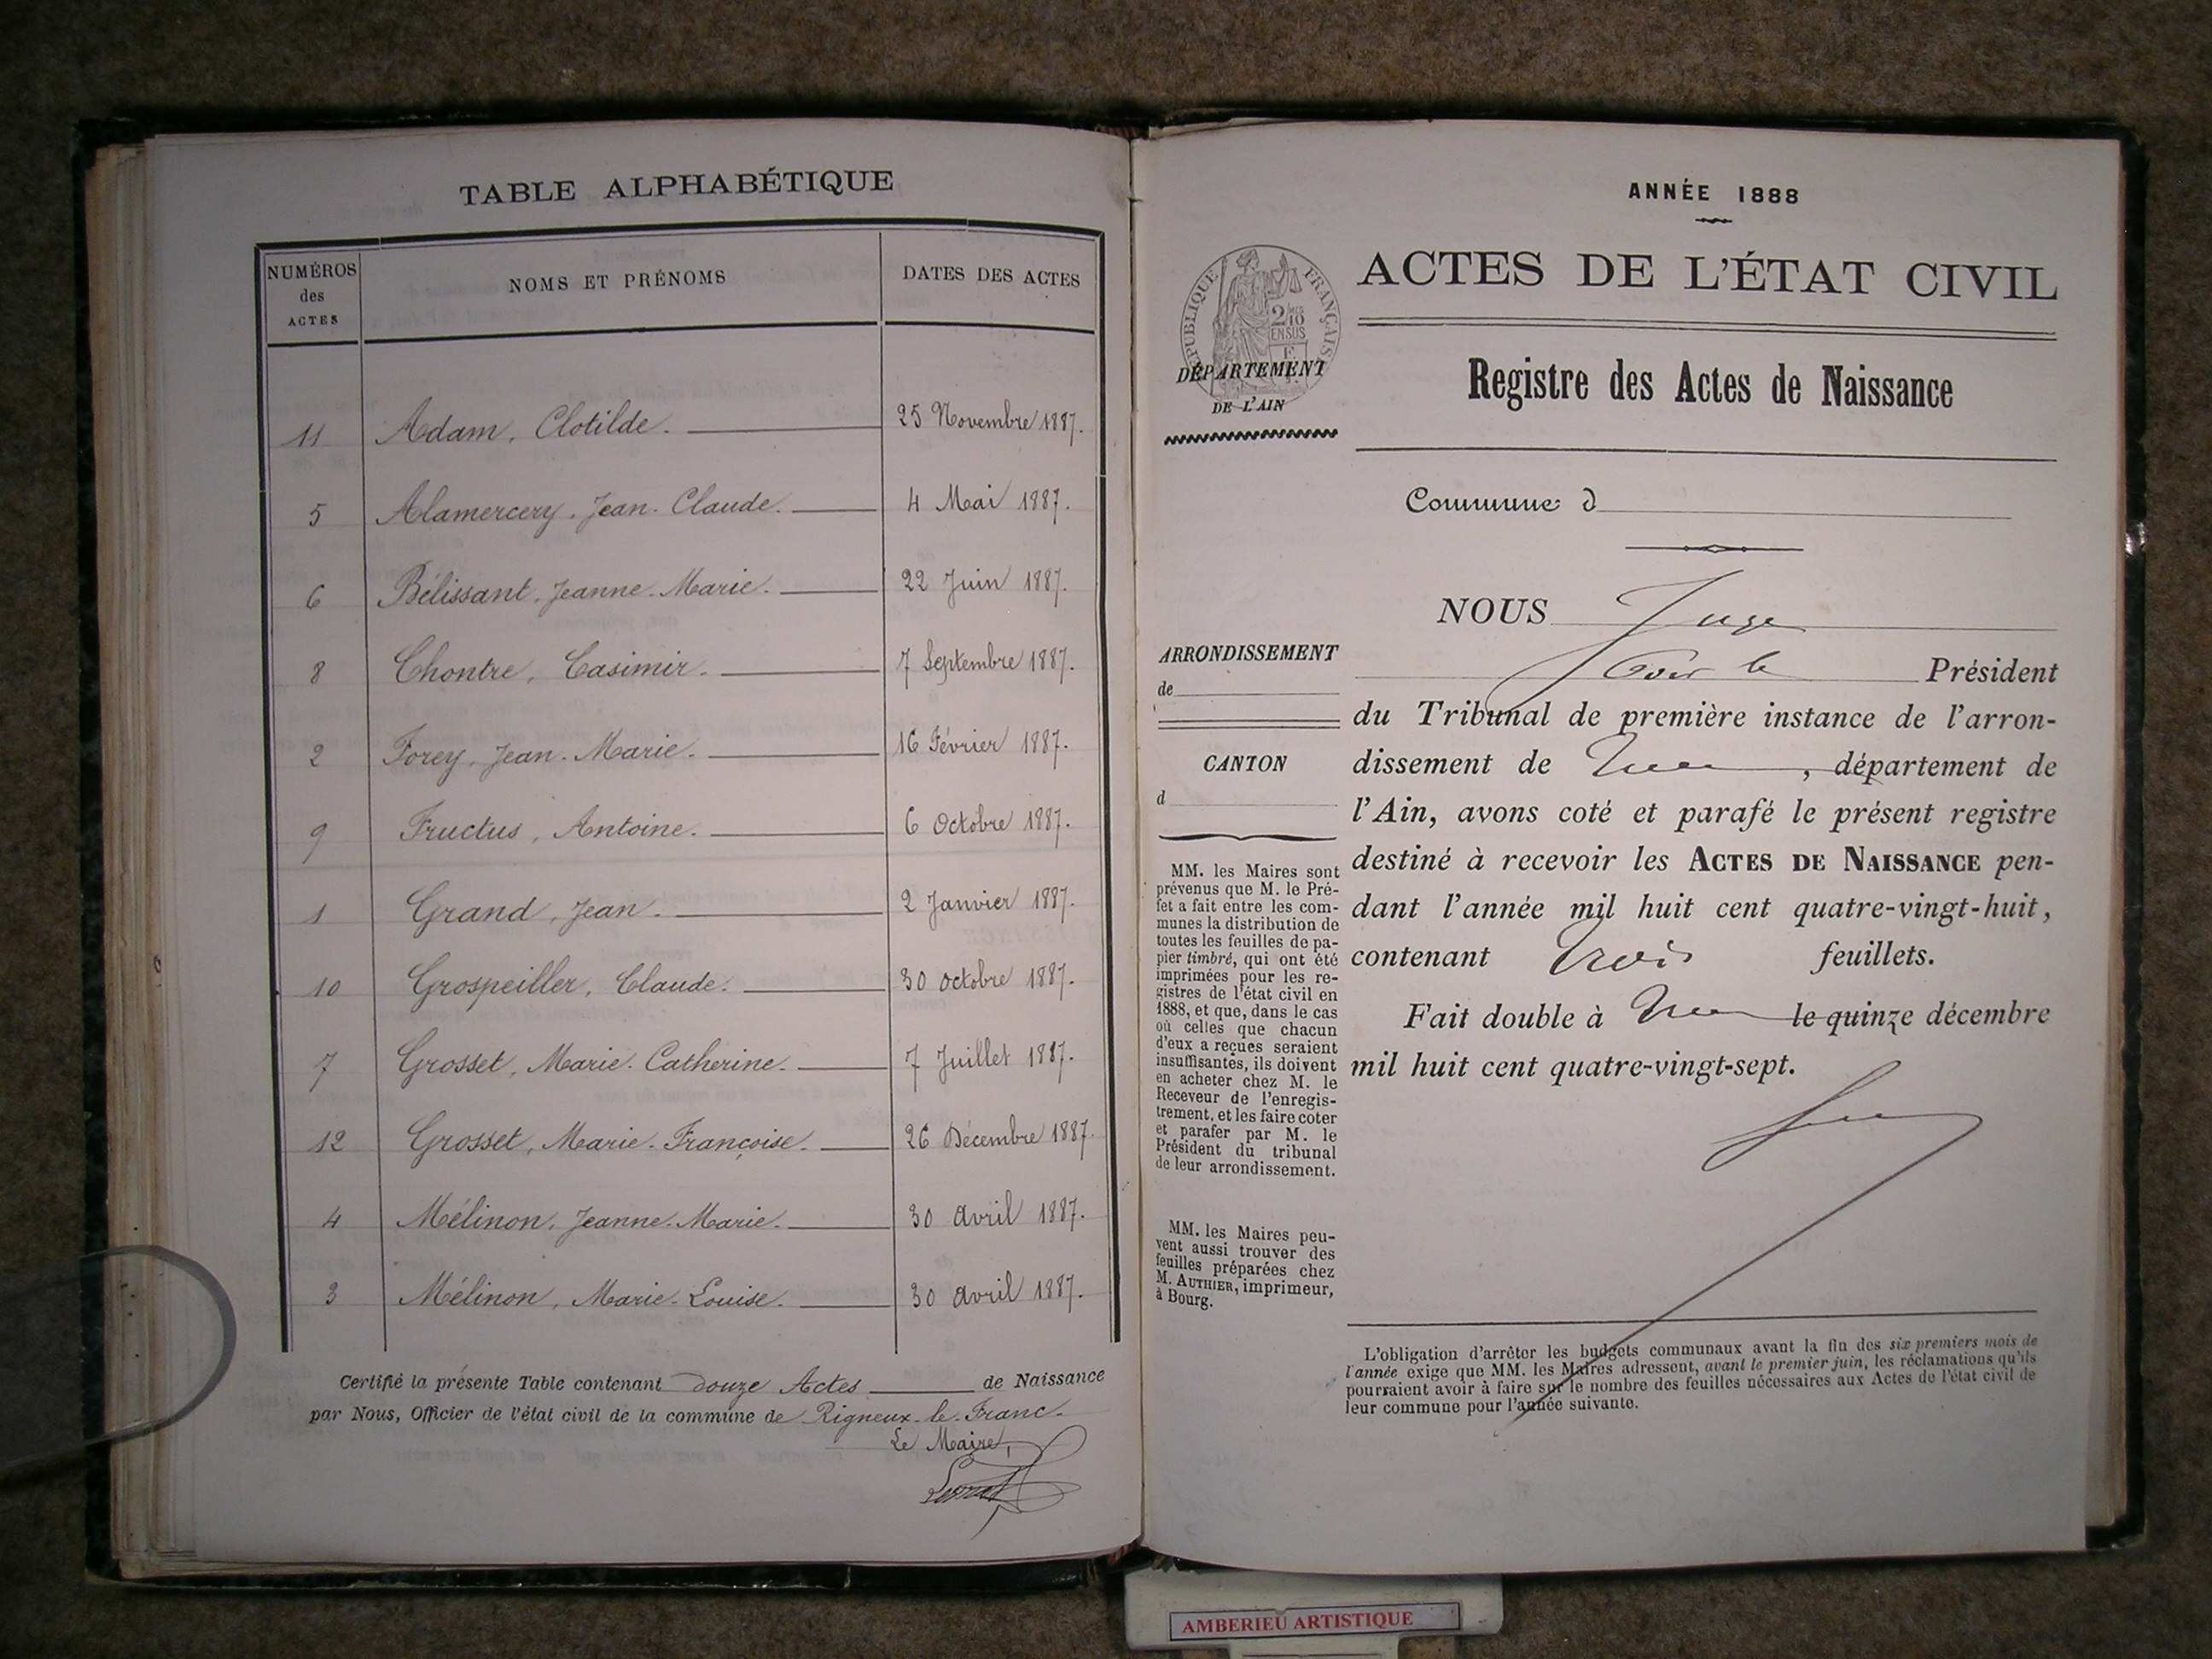 TABLE ALPHABÉTIQUE
NUMÉROS des ACTES NOMS ET PRÉNOMS DATES DES ACTES
11 Adam, Clotilde. 25 Novembre 1887.
5 Alamercery, Jean-Claude. 4 Mai 1887.
6 Bélissant, Jeanne-Marie. 22 Juin 1887.
8 Chontre, Casimir. 7 Septembre 1887.
2 Forey, Jean-Marie. 16 Février 1887.
9 Fructus, Antoine. 6 Octobre 1887.
1 Grand, Jean. 2 Janvier 1887.
10 Grospeiller, Claude. 30 octobre 1887.
7 Grosset, Marie-Catherine. 7 Juillet 1887.
12 Grosset, Marie-Françoise. 26 Décembre 1887.
4 Mélinon, Jeanne-Marie. 30 avril 1887.
3 Mélinon, Marie-Louise. 30 avril 1887.
Certifié la présente Table contenant douze Actes de Naissance
par Nous, Officier de l'état civil de la commune de Rigneux-le-Franc.
Le Maire,
ANNÉE 1888
ACTES DE L'ÉTAT CIVIL
RÉPUBLIQUE FRANÇAISE
DÉPARTEMENT
DE L'AIN
Registre des Actes de Naissance
Commune d
NOUS Juge
Pour le Président
du Tribunal de première instance de l'arron-
dissement de , département de
l'Ain, avons coté et parafé le présent registre
destiné à recevoir les ACTES DE NAISSANCE pen-
dant l'année mil huit cent quatre-vingt-huit,
contenant trois feuillets.
Fait double à le quinze décembre
mil huit cent quatre-vingt-sept.
ARRONDISSEMENT
de
CANTON
d
MM. les Maires sont
prévenus que M. le Pré-
fet a fait entre les com-
munes la distribution de
toutes les feuilles de pa-
pier timbré, qui ont été
imprimées pour les re-
gistres de l'état civil en
1888, et que, dans le cas
où celles que chacun
d'eux a reçues seraient
insuffisantes, ils doivent
en acheter chez M. le
Receveur de l'enregis-
trement, et les faire coter
et parafer par M. le
Président du tribunal
de leur arrondissement.
MM. les Maires peu-
vent aussi trouver des
feuilles préparées chez
M. AUTHIER, imprimeur,
à Bourg.
L'obligation d'arrêter les budgets communaux avant la fin des six premiers mois de
l'année exige que MM. les Maires adressent, avant le premier juin, les réclamations qu'ils
pourraient avoir à faire sur le nombre des feuilles nécessaires aux Actes de l'état civil de
leur commune pour l'année suivante.
AMBERIEU ARTISTIQUE